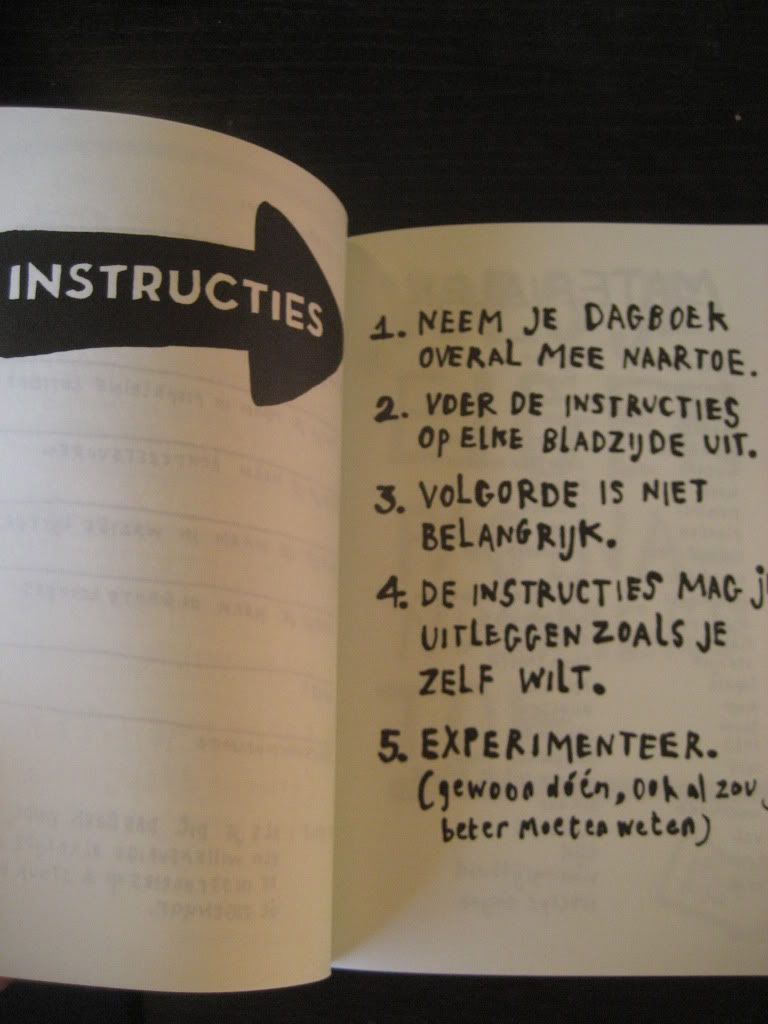 INSTRUCTIES
1. NEEM JE DAGBOEK
OVERAL MEE NAARTOE.
2. VOER DE INSTRUCTIES
OP ELKE BLADZIJDE UIT.
3. VOLGORDE IS NIET
BELANGRIJK.
4. DE INSTRUCTIES MAG JE
UITLEGGEN ZOALS JE
ZELF WILT.
5. EXPERIMENTEER.
(gewoon dóén, ook al zou j
beter moeten weten)